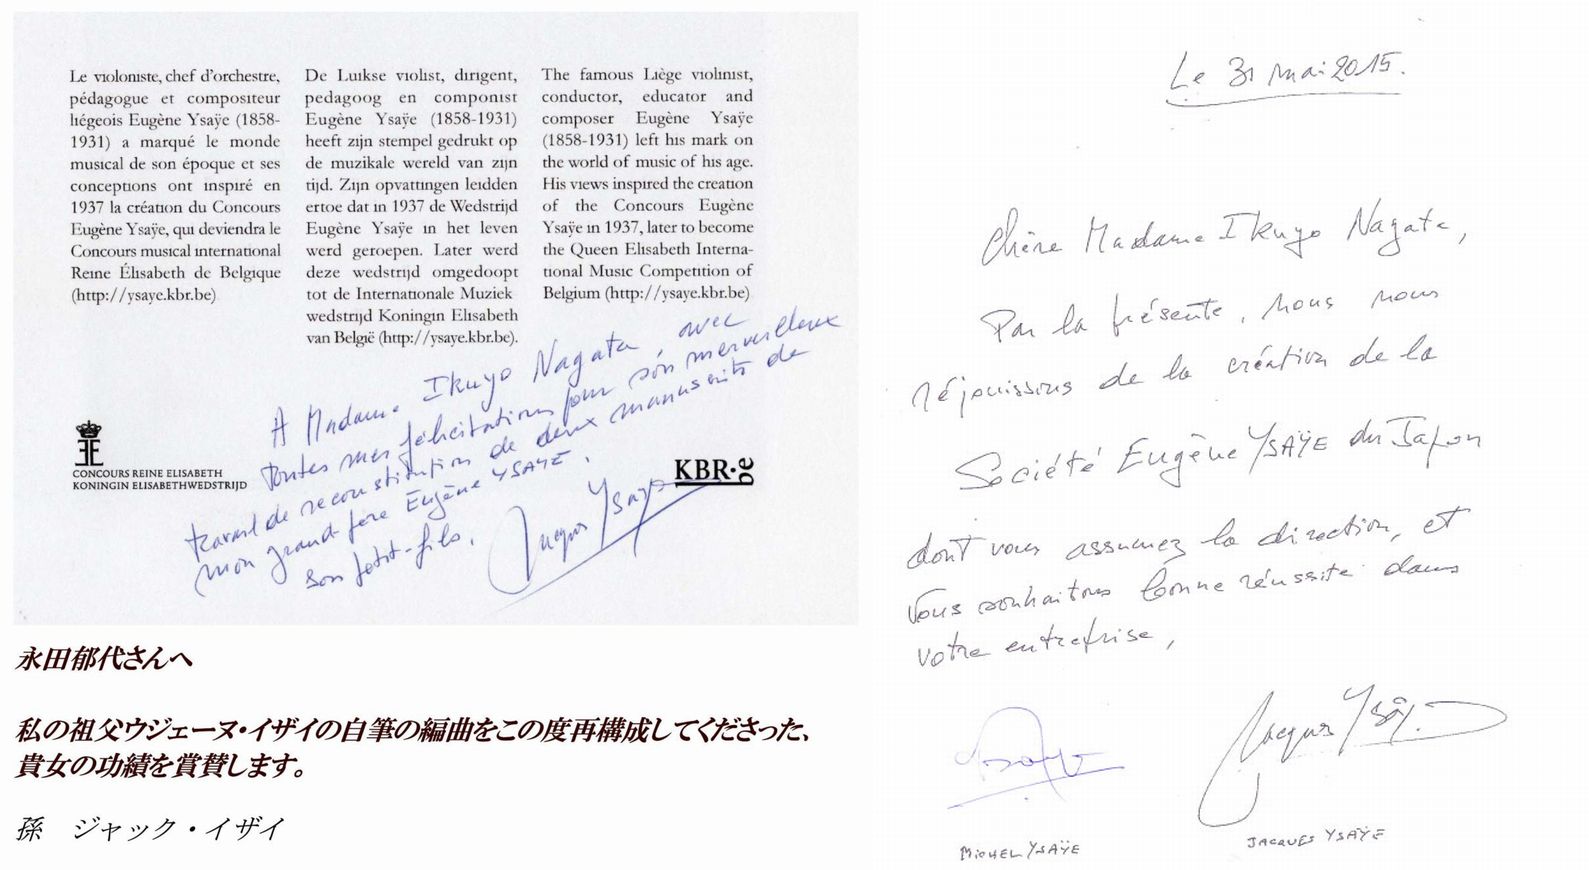 Le violoniste, chef d'orchestre,
pédagogue et compositeur
liégeois Eugène Ysaÿe (1858-
1931) a marqué le monde
musical de son époque et ses
conceptions ont inspiré en
1937 la création du Concours
Eugène Ysaÿe, qui deviendra le
Concours musical international
Reine Élisabeth de Belgique
(http://ysaye.kbr.be)
De Luikse violist, dirigent,
pedagoog en componist
Eugène Ysaÿe (1858-1931)
heeft zijn stempel gedrukt op
de muzikale wereld van zijn
tijd. Zijn opvattingen leidden
ertoe dat in 1937 de Wedstrijd
Eugène Ysaÿe in het leven
werd geroepen. Later werd
deze wedstrijd omgedoopt
tot de Internationale Muziek
wedstrijd Koningin Elisabeth
van België (http://ysaye.kbr.be).
The famous Liège violinist,
conductor, educator and
composer Eugène Ysaÿe
(1858-1931) left his mark on
the world of music of his age.
His views inspired the creation
of the Concours Eugène
Ysaÿe in 1937, later to become
the Queen Elisabeth Interna-
tional Music Competition of
Belgium (http://ysaye.kbr.be)
A Madame Ikuyo Nagata, avec
toutes mes félicitations pour son merveilleux
travail de reconstitution de deux manuscrits de
mon grand-père Eugène YSAŸE.
son petit-fils.
Jacques Ysaye
CONCOURS REINE ELISABETH
KONINGIN ELISABETHWEDSTRIJD
KBR.be
永田郁代さんへ
私の祖父ウジェーヌ・イザイの自筆の編曲をこの度再構成してくださった、
貴女の功績を賞賛します。
孫　ジャック・イザイ
Le 31 mai 2015.
Chère Madame Ikuyo Nagata,
Par la présente, nous nous
réjouissons de la création de la
Société Eugène YSAŸE du Japon
dont vous assumez la direction, et
vous souhaitons bonne réussite dans
votre entreprise,
Ysaye
Jacques Ysaÿe
MICHEL YSAŸE
JACQUES YSAŸE